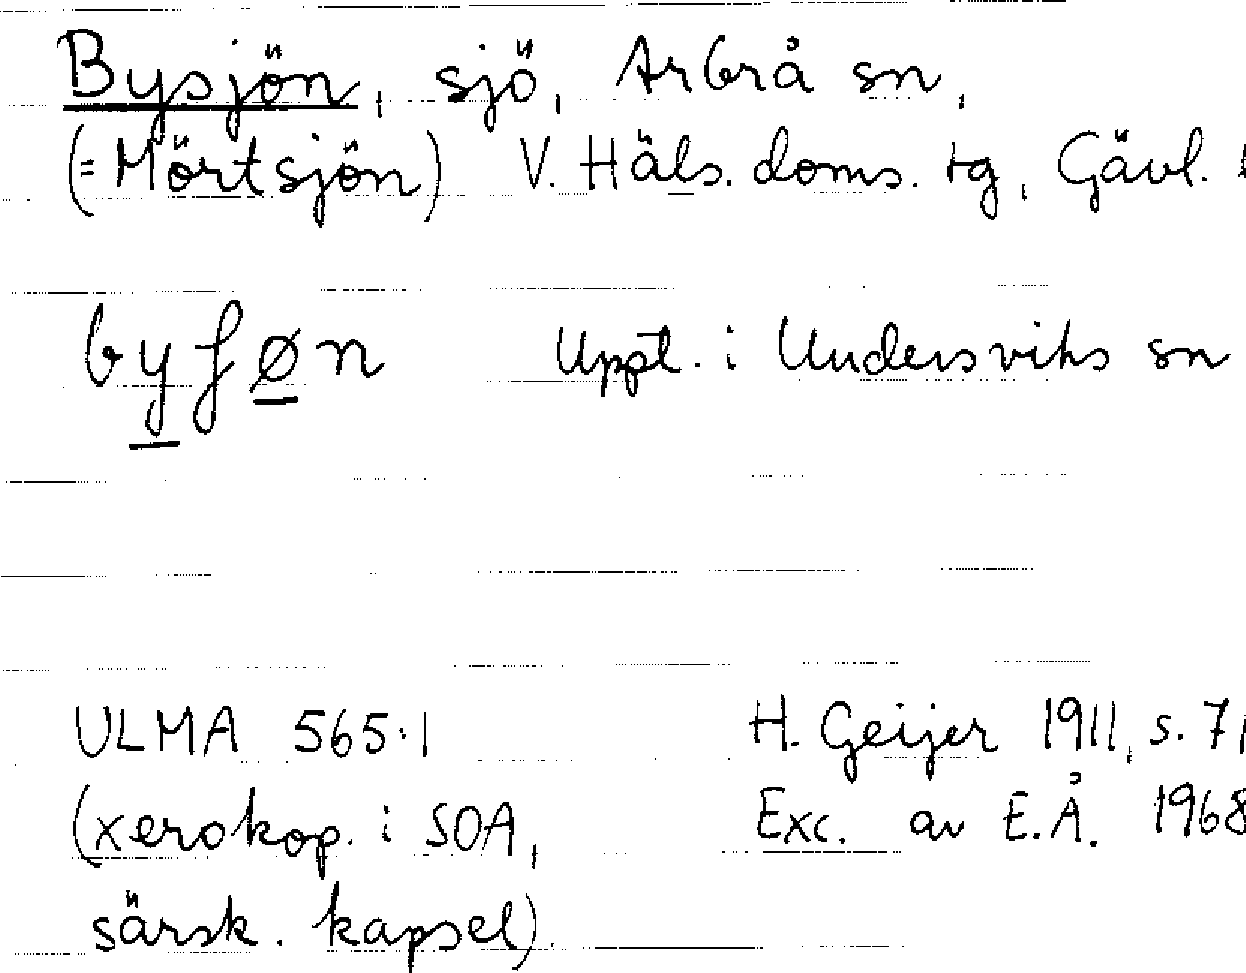 Bysjön, sjö, Arbrå sn,
(= Mörtsjön) V. Häls. doms. tg, Gävl.
byʃøn Uppt. i Undersviks sn
ULMA 565:1 H. Geijer 1911, s. 71
(xerokop. i SOA, Exc. av E.Å. 1968
särsk. kapsel).